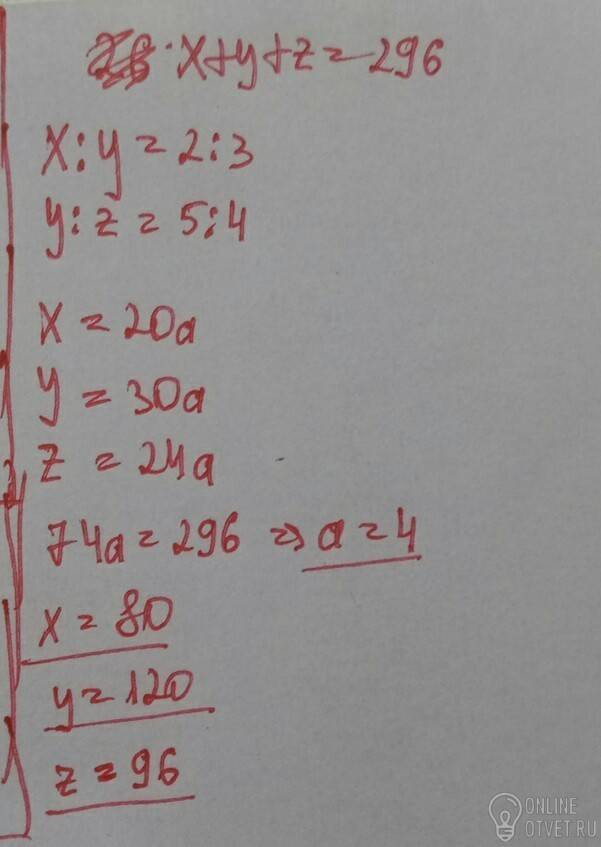 x+y+z=296
x:y=2:3
y:z=5:4
x=20a
y=30a
z=24a
74a=296 => a=4
x=80
y=120
z=96
ONLINE
OTVET.RU